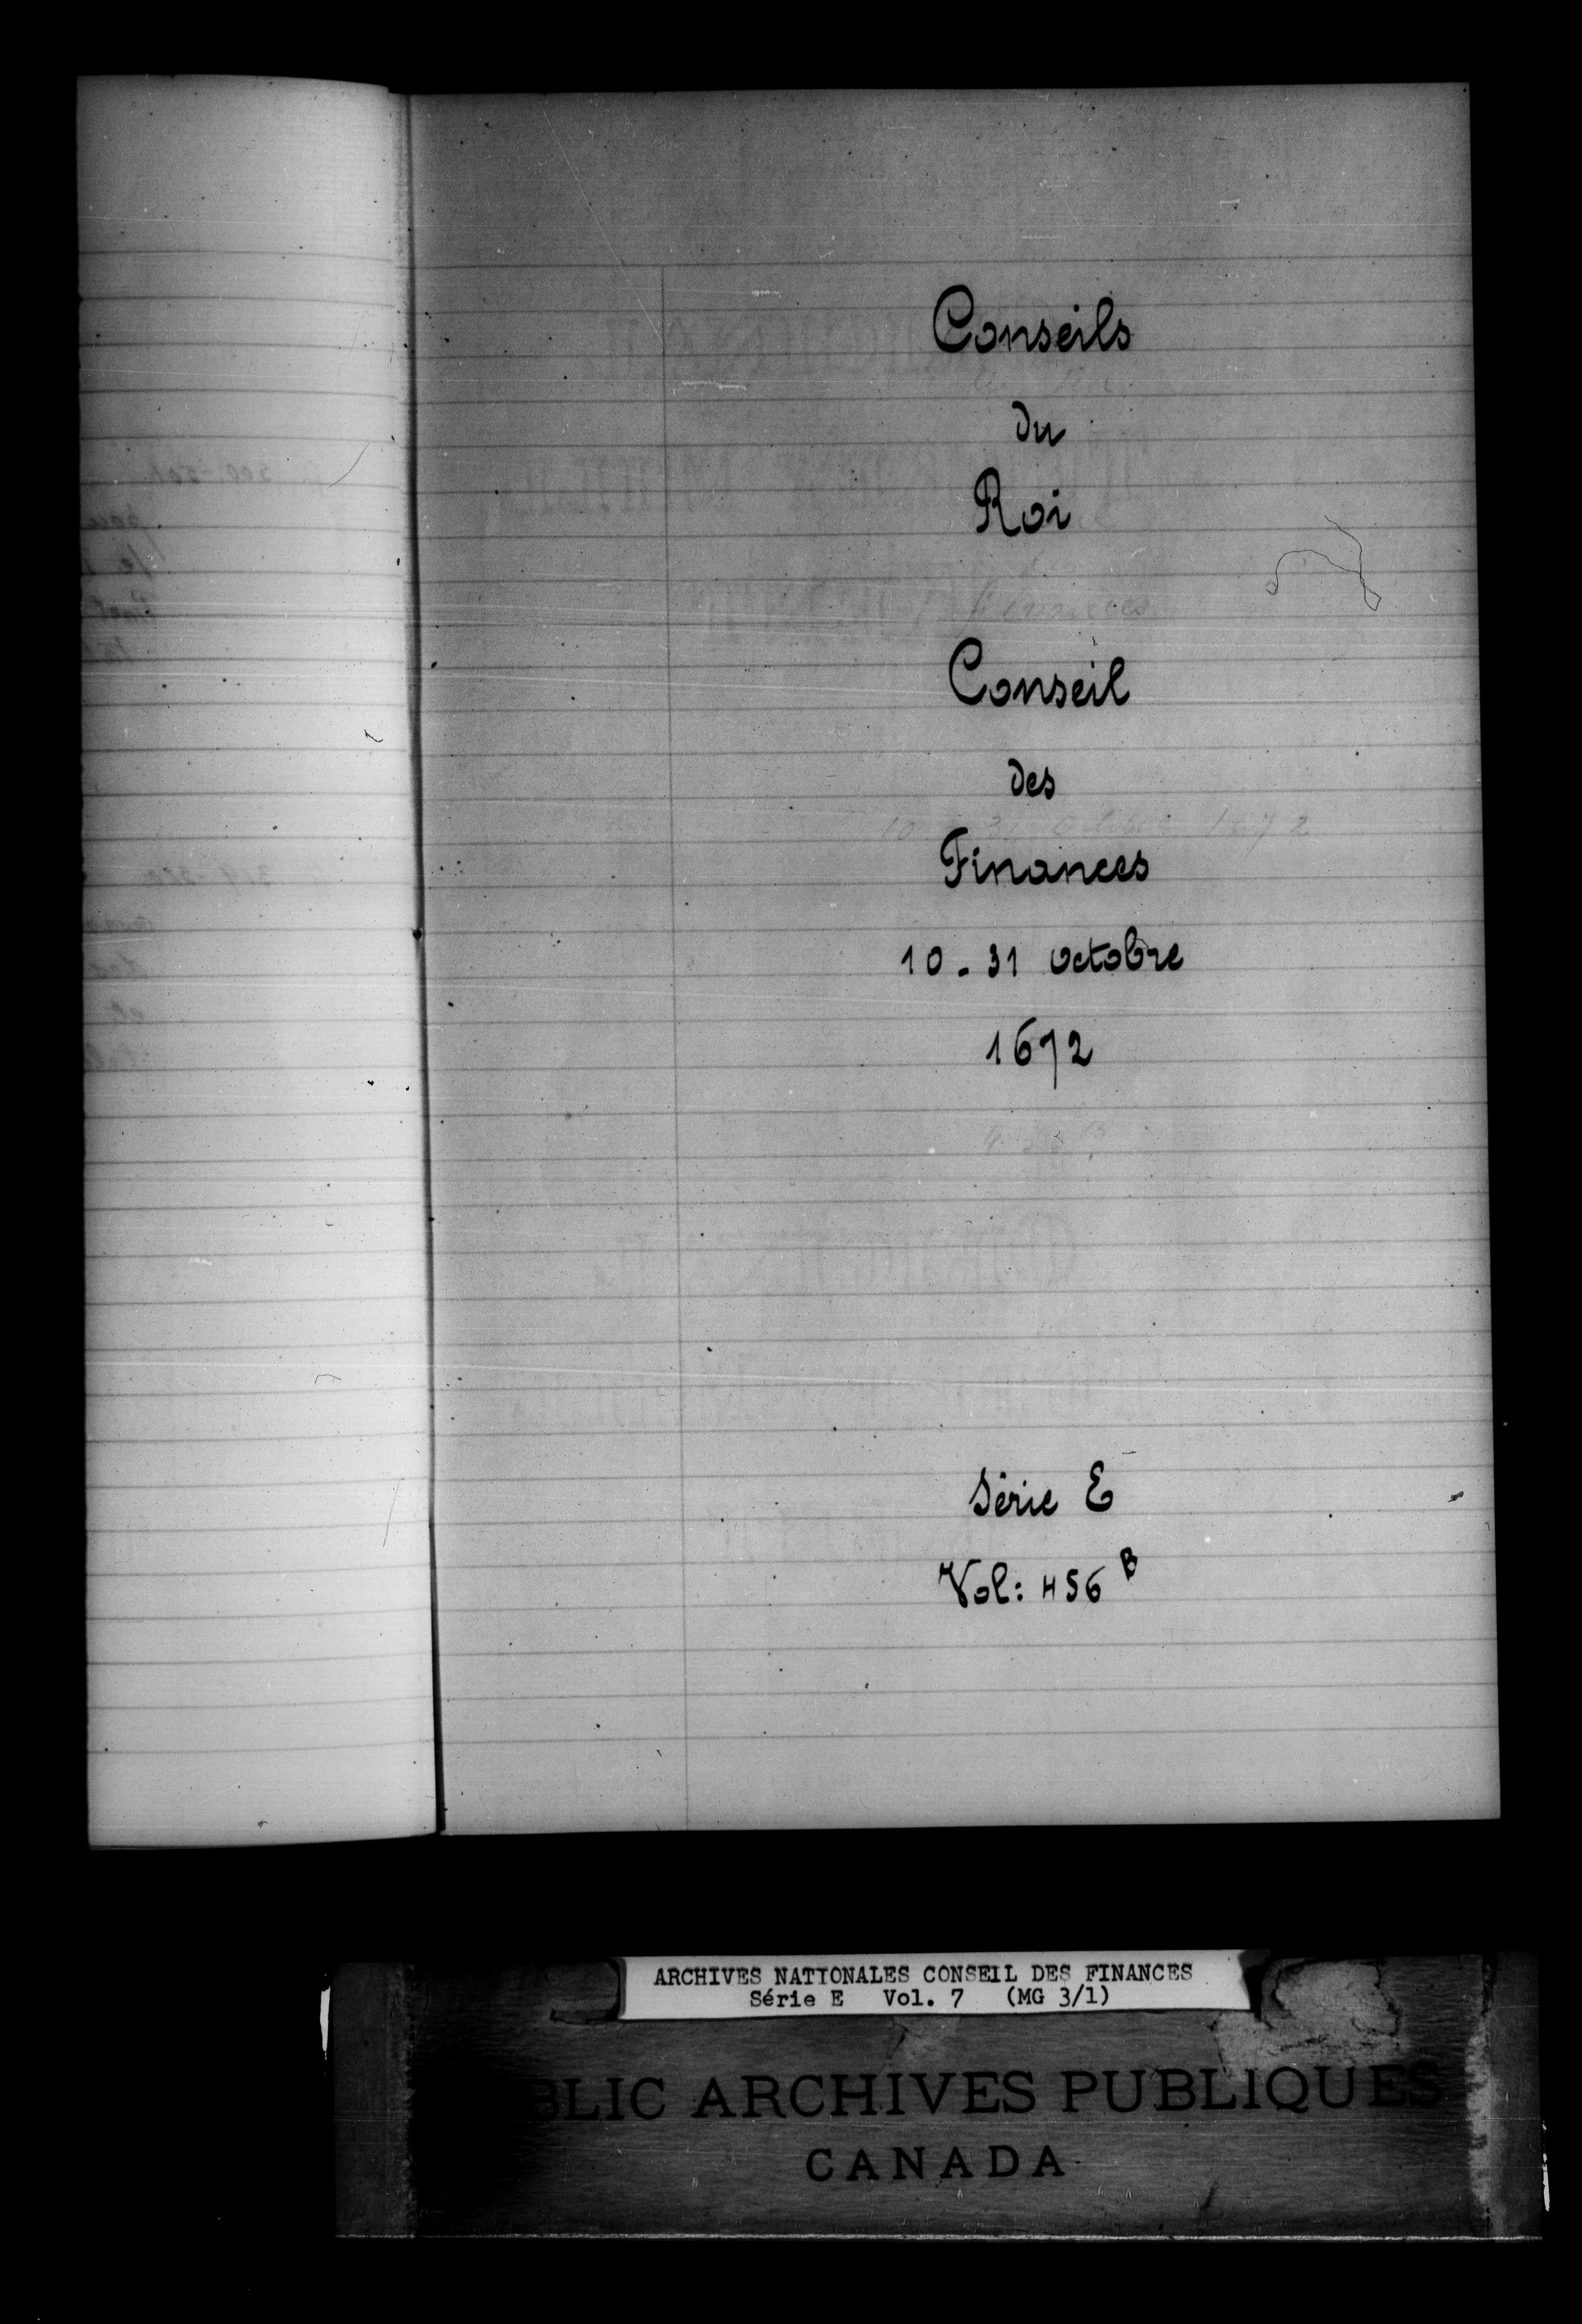 Conseils
du
Roi
Conseil
des
Finances
10 - 31 octobre
1672
Série E
Vol: 456 B
ARCHIVES NATIONALES CONSEIL DES FINANCES
Série E Vol. 7 (MG 3/1)
BLIC ARCHIVES PUBLIQUES
CANADA